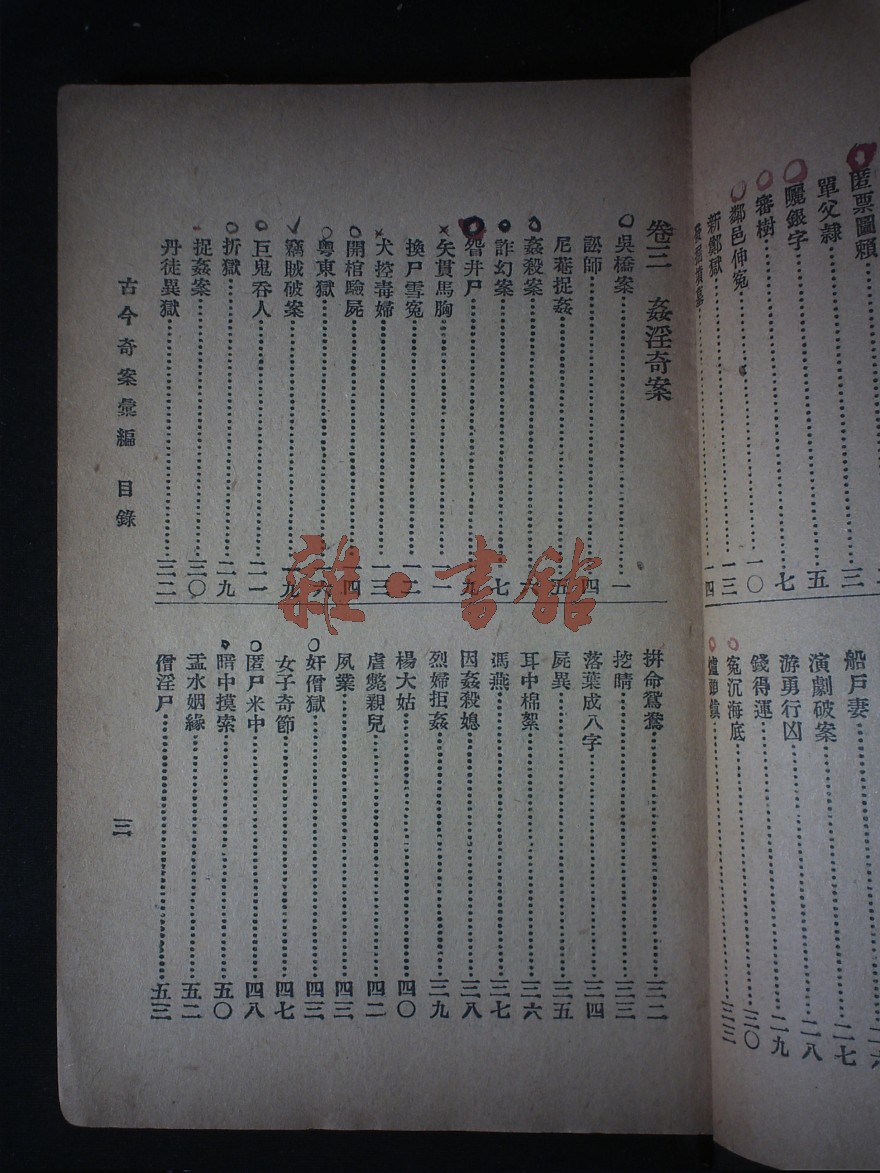 匿票圖賴 三
單父隸 五
曬銀字 七
審樹 一〇
鄰邑伸冤 一三
新鄭獄 一四
船戶妻 二七
演劇破案 二八
游勇行凶 二九
錢得運 三〇
冤沉海底 三三
卷三 姦淫奇案
吳橋案 一
訟師 四
尼菴捉姦 五
姦殺案 六
詐幻案 七
眢井尸 九
矢貫馬胸 一一
換尸雪冤 一二
犬控毒婦 一三
開棺驗屍 一四
粵東獄 一六
竊賊破案 一九
巨鬼吞人 二一
折獄 二九
捉姦案 三〇
丹徒異獄 三二
拚命鴛鴦 三二
挖睛 三三
落葉成八字 三四
屍異 三五
耳中棉絮 三六
馮燕 三七
因姦殺媳 三八
烈婦拒姦 三九
楊大姑 四〇
虐斃親兒 四二
夙業 四三
奸僧獄 四三
女子奇節 四七
匿尸米中 四八
暗中摸索 五〇
盂水姻緣 五二
僧淫尸 五三
古今奇案彙編 目錄 三
雜·書館